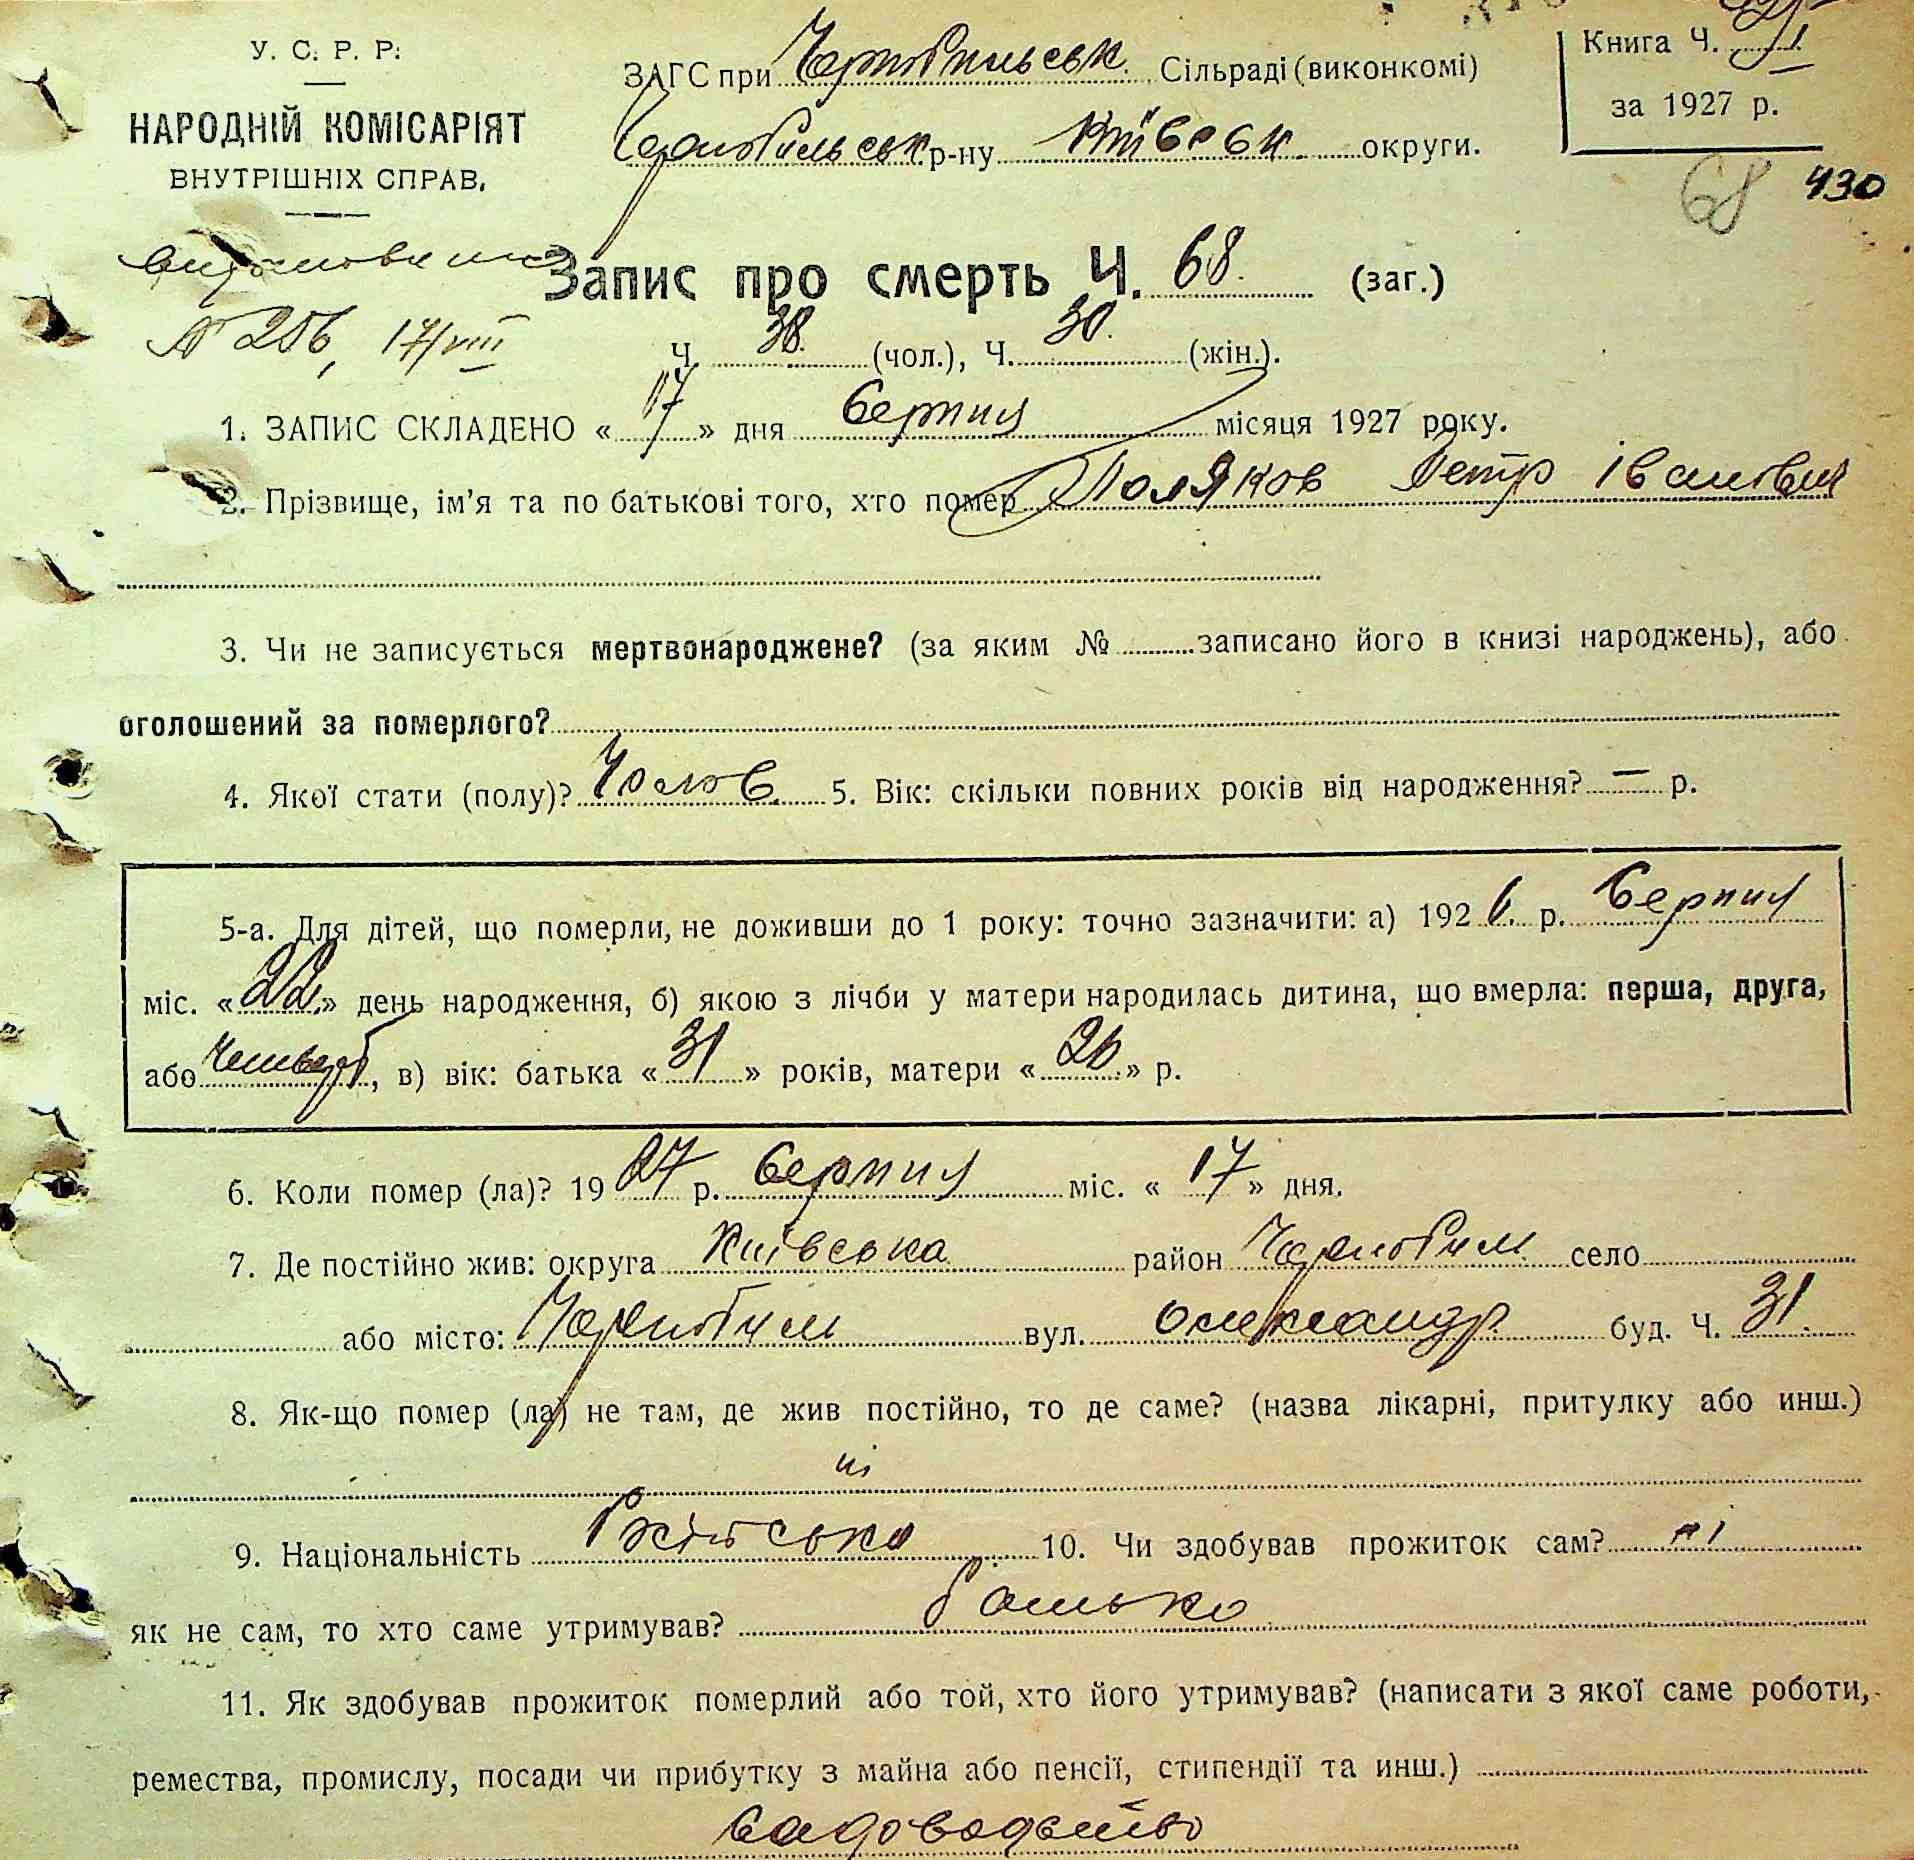 У. С. Р. Р.
НАРОДНІЙ КОМІСАРІЯТ
ВНУТРІШНІХ СПРАВ.
ЗАГС при Чернобильськ. Сільраді (виконкомі)
Чернобильськ р-ну Київськ. округи.
Книга Ч.
за 1927 р.
68 430
Запис про смерть Ч. 68. (заг.)
№ 256, 17/VIII
Ч. 38. (чол.), Ч. 30. (жін.).
1. ЗАПИС СКЛАДЕНО « 17 » дня Серпня місяця 1927 року.
2. Прізвище, ім'я та по батькові того, хто помер Поляков Петр Іванович
3. Чи не записується мертвонароджене? (за яким № записано його в книзі народжень), або
оголошений за померлого?
4. Якої стати (полу)? Чолов. 5. Вік: скільки повних років від народження? — р.
5-а. Для дітей, що померли, не доживши до 1 року: точно зазначити: а) 192 6. р. Серпня
міс. « 22. » день народження, б) якою з лічби у матери народилась дитина, що вмерла: перша, друга,
або, в) вік: батька « 31 » років, матери « 26 » р.
6. Коли помер (ла)? 19 27 р. Серпня міс. « 17 » дня.
7. Де постійно жив: округа Київська район Чернобил. село
або місто: Чернобил вул. Олександр. буд. Ч. 31.
8. Як-що помер (ла) не там, де жив постійно, то де саме? (назва лікарні, притулку або инш.)
ні
9. Національність 10. Чи здобував прожиток сам? ні
як не сам, то хто саме утримував? батько
11. Як здобував прожиток померлий або той, хто його утримував? (написати з якої саме роботи,
ремества, промислу, посади чи прибутку з майна або пенсії, стипендії та инш.)
садоводство